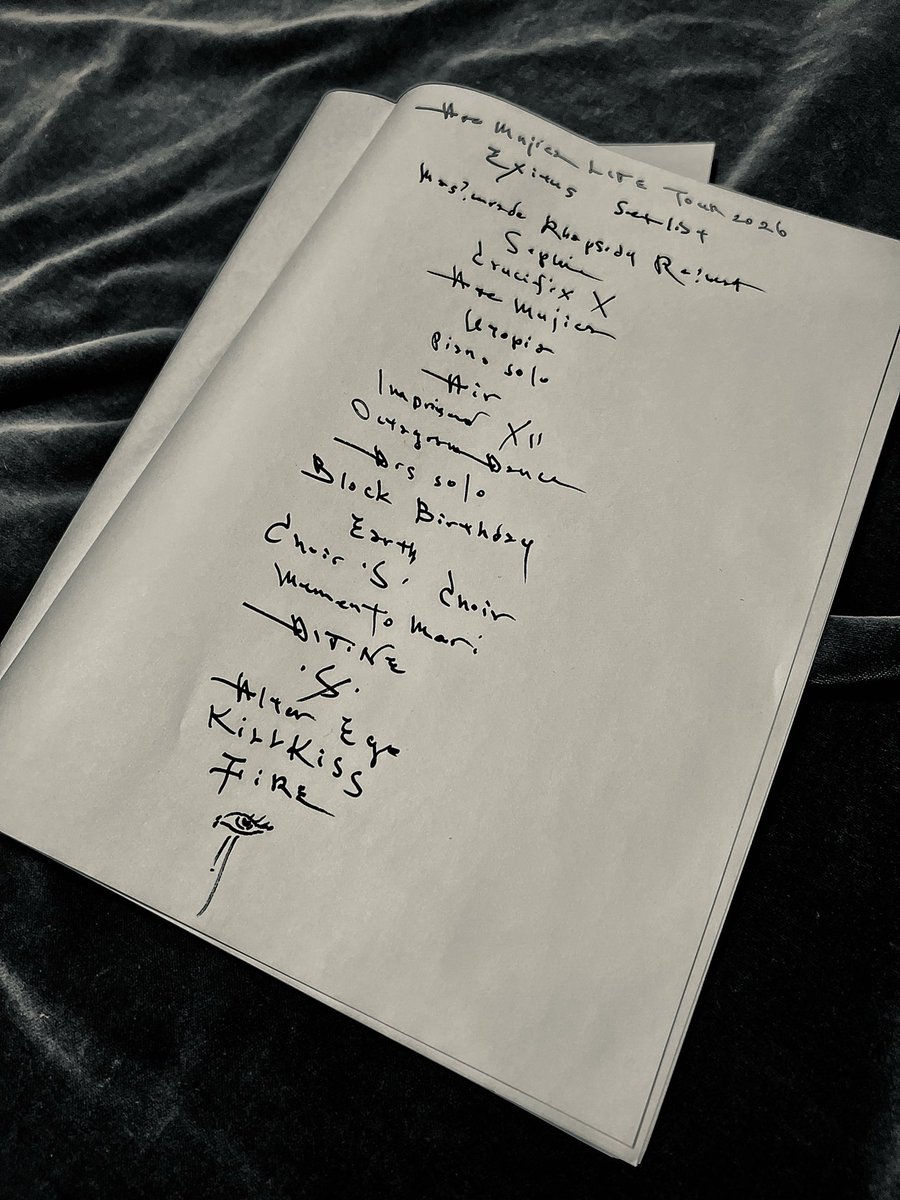 Ave Mujica LIVE Tour 2026
Exitus Set list
Masquerade Rhapsody Request
Sophie
Crucifix X
Ave Mujica
Utopia
Piano solo
Air
Imprisoned XII
Octagram Dance
Drs solo
Black Birthday
Earth
Choir 'S' Choir
Memento Mori
DIVINE
'S'
Alter Ego
KiLLKiSS
FiRE